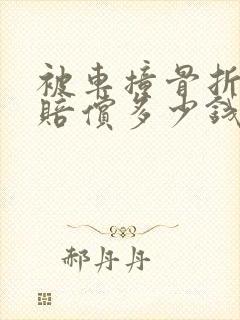 被車撞骨折
賠償多少錢
郝丹丹